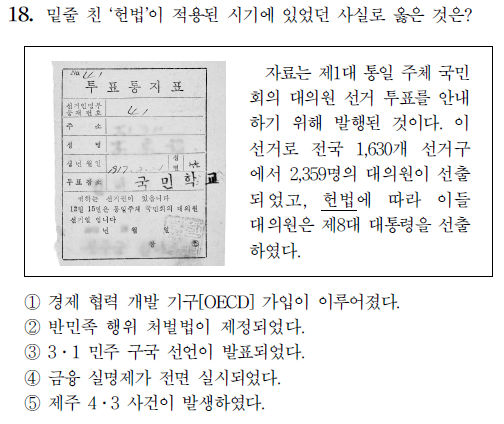 18. 밑줄 친 ‘헌법’이 적용된 시기에 있었던 사실로 옳은 것은?
No 41
투 표 통 지 표
선거인명부
등재번호
41
주 소
성 명
생년월일
1917.
성별
투표장소
국민학교
귀하는 선거권이 있습니다
12월 15일은 통일주체 국민회의 대의원
선거일 입니다
년 월 일
장
자료는 제1대 통일 주체 국민
회의 대의원 선거 투표를 안내
하기 위해 발행된 것이다. 이
선거로 전국 1,630개 선거구
에서 2,359명의 대의원이 선출
되었고, 헌법에 따라 이들
대의원은 제8대 대통령을 선출
하였다.
① 경제 협력 개발 기구[OECD] 가입이 이루어졌다.
② 반민족 행위 처벌법이 제정되었다.
③ 3·1 민주 구국 선언이 발표되었다.
④ 금융 실명제가 전면 실시되었다.
⑤ 제주 4·3 사건이 발생하였다.